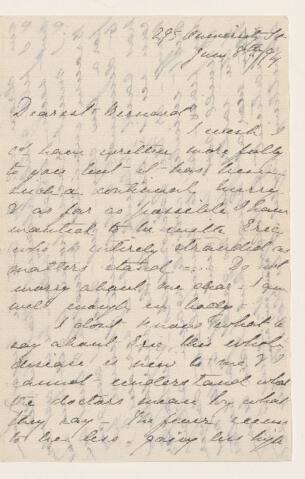 295 University St.
June 8th/94
Dearest Bernard
I wish I
cd have written more fully
to you but it has been
such a continual worry
& as far as possible I have
wanted to be with Eric
who is entirely stranded as
matters stand - Do not
worry about me dear - I am
well enough in body -
I don't know what to
say about Eric, this whole
disease is new to me & I
cannot understand what
the doctors mean by what
they say - The fever seems
to be less - going less high